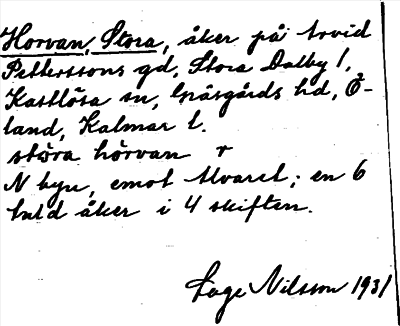 Horvan, Stora, åker på Arvid
Petterssons gd, Stora Dalby 1,
Kastlösa sn, Gräsgårds hd, Ö-
land, Kalmar l.
stôra hörvan r
N byn, emot Alvaret; en 6
tunld åker i 4 skiften.
Lage Nilsson 1931